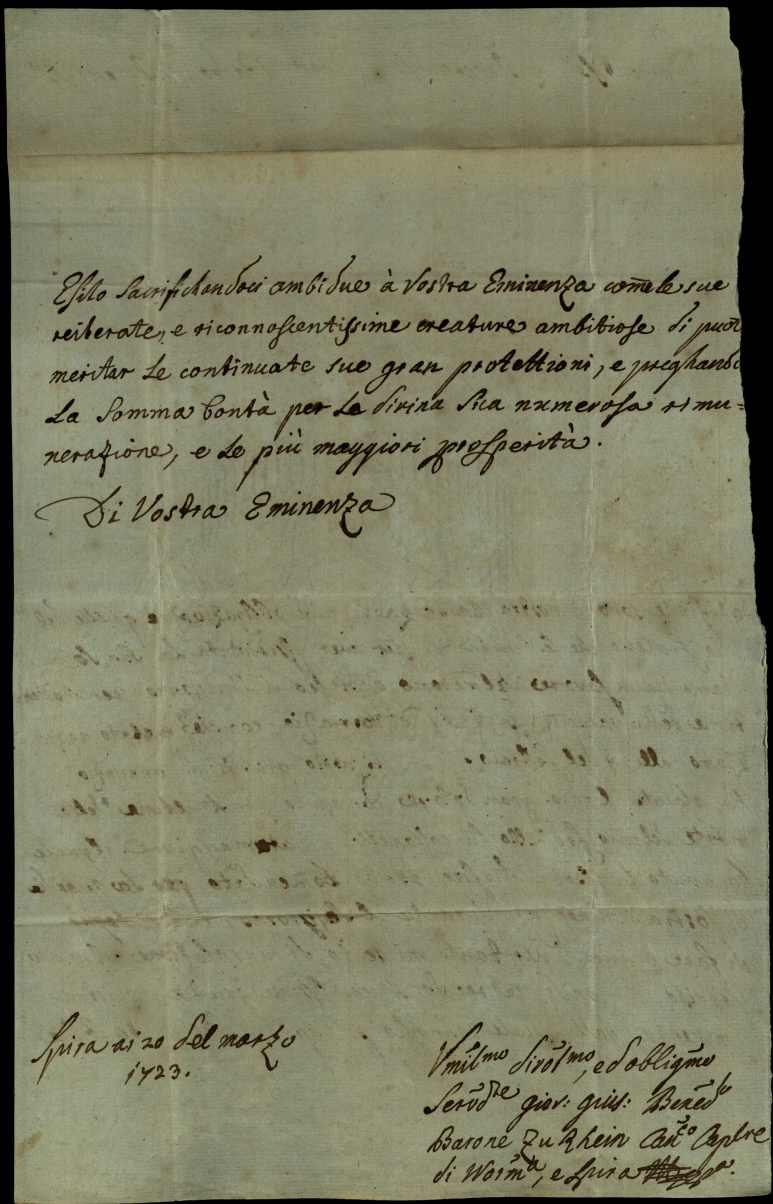 Esilo Sacrifichandoci ambidue à Vostra Eminenza com̃e le sue
reiterate, e riconnoscentissime creature ambitiose di puoter
meritar Le continuate sue gran protettioni, e preghando
La Somma bontà per La divina Sua numerosa rimu=
nerazione, e Le più maggiori prosperità.
Di Vostra Eminenza
Spira ai 20 del marzo
1723.
Umil̃mo divot̃mo, ed obligm̃o
Serṽdre giov: gius: Bened̃to
Barone Zu Rhein Cañco Caplre
di Worm̃a, e Spira